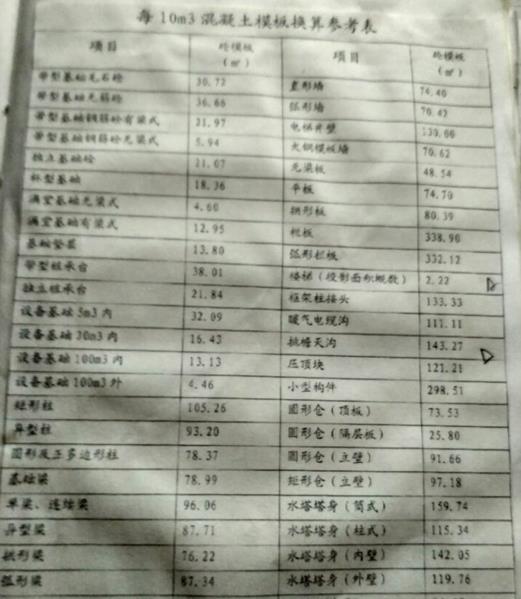 每10m3混凝土模板换算参考表
项目 砼模板(㎡) 项目 砼模板(㎡)
带型基础毛石砼 30.72 直形墙 74.40
带型基础无筋砼 36.66 弧形墙 70.42
带型基础钢筋砼有梁式 21.97 电梯井壁
带型基础钢筋砼无梁式 5.94 大钢模板墙 70.62
独立基础砼 21.07 无梁板 48.54
杯型基础 18.36 平板 74.70
满堂基础无梁式 4.60 拱形板 80.39
满堂基础有梁式 12.95 栏板 338.90
基础垫层 13.80 弧形栏板 332.12
带型桩承台 38.01 楼梯(投影面积概数) 2.22
独立桩承台 21.84 框架柱接头 133.33
设备基础5m3内 32.09 暖气电缆沟 111.11
设备基础20m3内 16.43 挑檐天沟 143.27
设备基础100m3内 13.13 压顶块 121.21
设备基础100m3外 4.46 小型构件 298.51
矩形柱 105.26 圆形仓(顶板) 73.53
异型柱 93.20 圆形仓(隔层板) 25.80
圆形及正多边形柱 78.37 圆形仓(立壁) 91.66
基础梁 78.99 矩形仓(立壁) 97.18
单梁、连续梁 96.06 水塔塔身(筒式) 159.74
异型梁 87.71 水塔塔身(柱式) 115.34
拱形梁 76.22 水塔塔身(内壁) 142.05
弧形梁 87.34 水塔塔身(外壁) 119.76